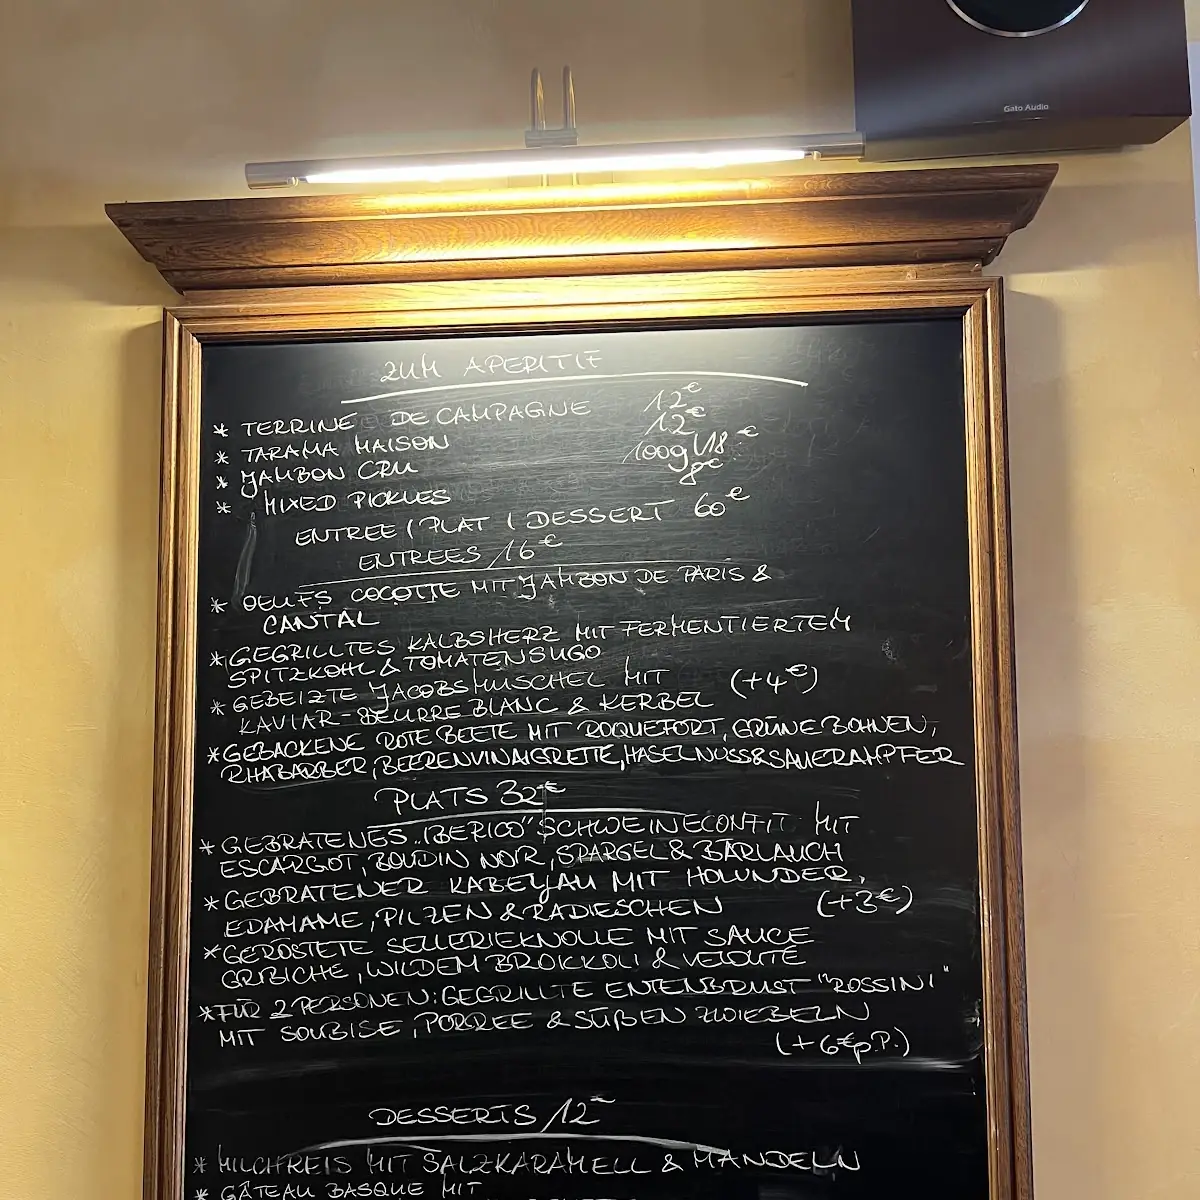 Gato Audio
ZUM APERITIF
* TERRINE DE CAMPAGNE 12€
* TARAMA MAISON 12€
* JAMBON CRU 100g/18€
* MIXED PICKLES 8€
ENTREE / PLAT / DESSERT 60€
ENTREES /16€
* OEUFS COCOTTE MIT JAMBON DE PARIS &
CANTAL
* GEGRILLTES KALBSHERZ MIT FERMENTIERTEM
SPITZKOHL & TOMATENSUGO
* GEBEIZTE JACOBSMUSCHEL MIT (+4€)
KAVIAR-BEURRE BLANC & KERBEL
* GEBACKENE ROTE BEETE MIT ROQUEFORT, GRÜNE BOHNEN,
RHABARBER, BEERENVINAIGRETTE, HASELNUSS & SAUERAMPFER
PLATS 32€
* GEBRATENES „IBERICO" SCHWEINECONFIT MIT
ESCARGOT, BOUDIN NOIR, SPARGEL & BÄRLAUCH
* GEBRATENER KABEYAU MIT HOLUNDER,
EDAMAME, PILZEN & RADIESCHEN (+3€)
* GERÖSTETE SELLERIEKNOLLE MIT SAUCE
GRIBICHE, WILDEM BROKKOLI & VELOUTE
* FÜR 2 PERSONEN: GEGRILLTE ENTENBRUST "ROSSINI"
MIT SOUBISE, PORREE & SÜßEN ZWIEBELN
(+6€ p.P.)
DESSERTS /12
* MILCHREIS MIT SALZKARAMELL & MANDELN
* GÂTEAU BASQUE MIT